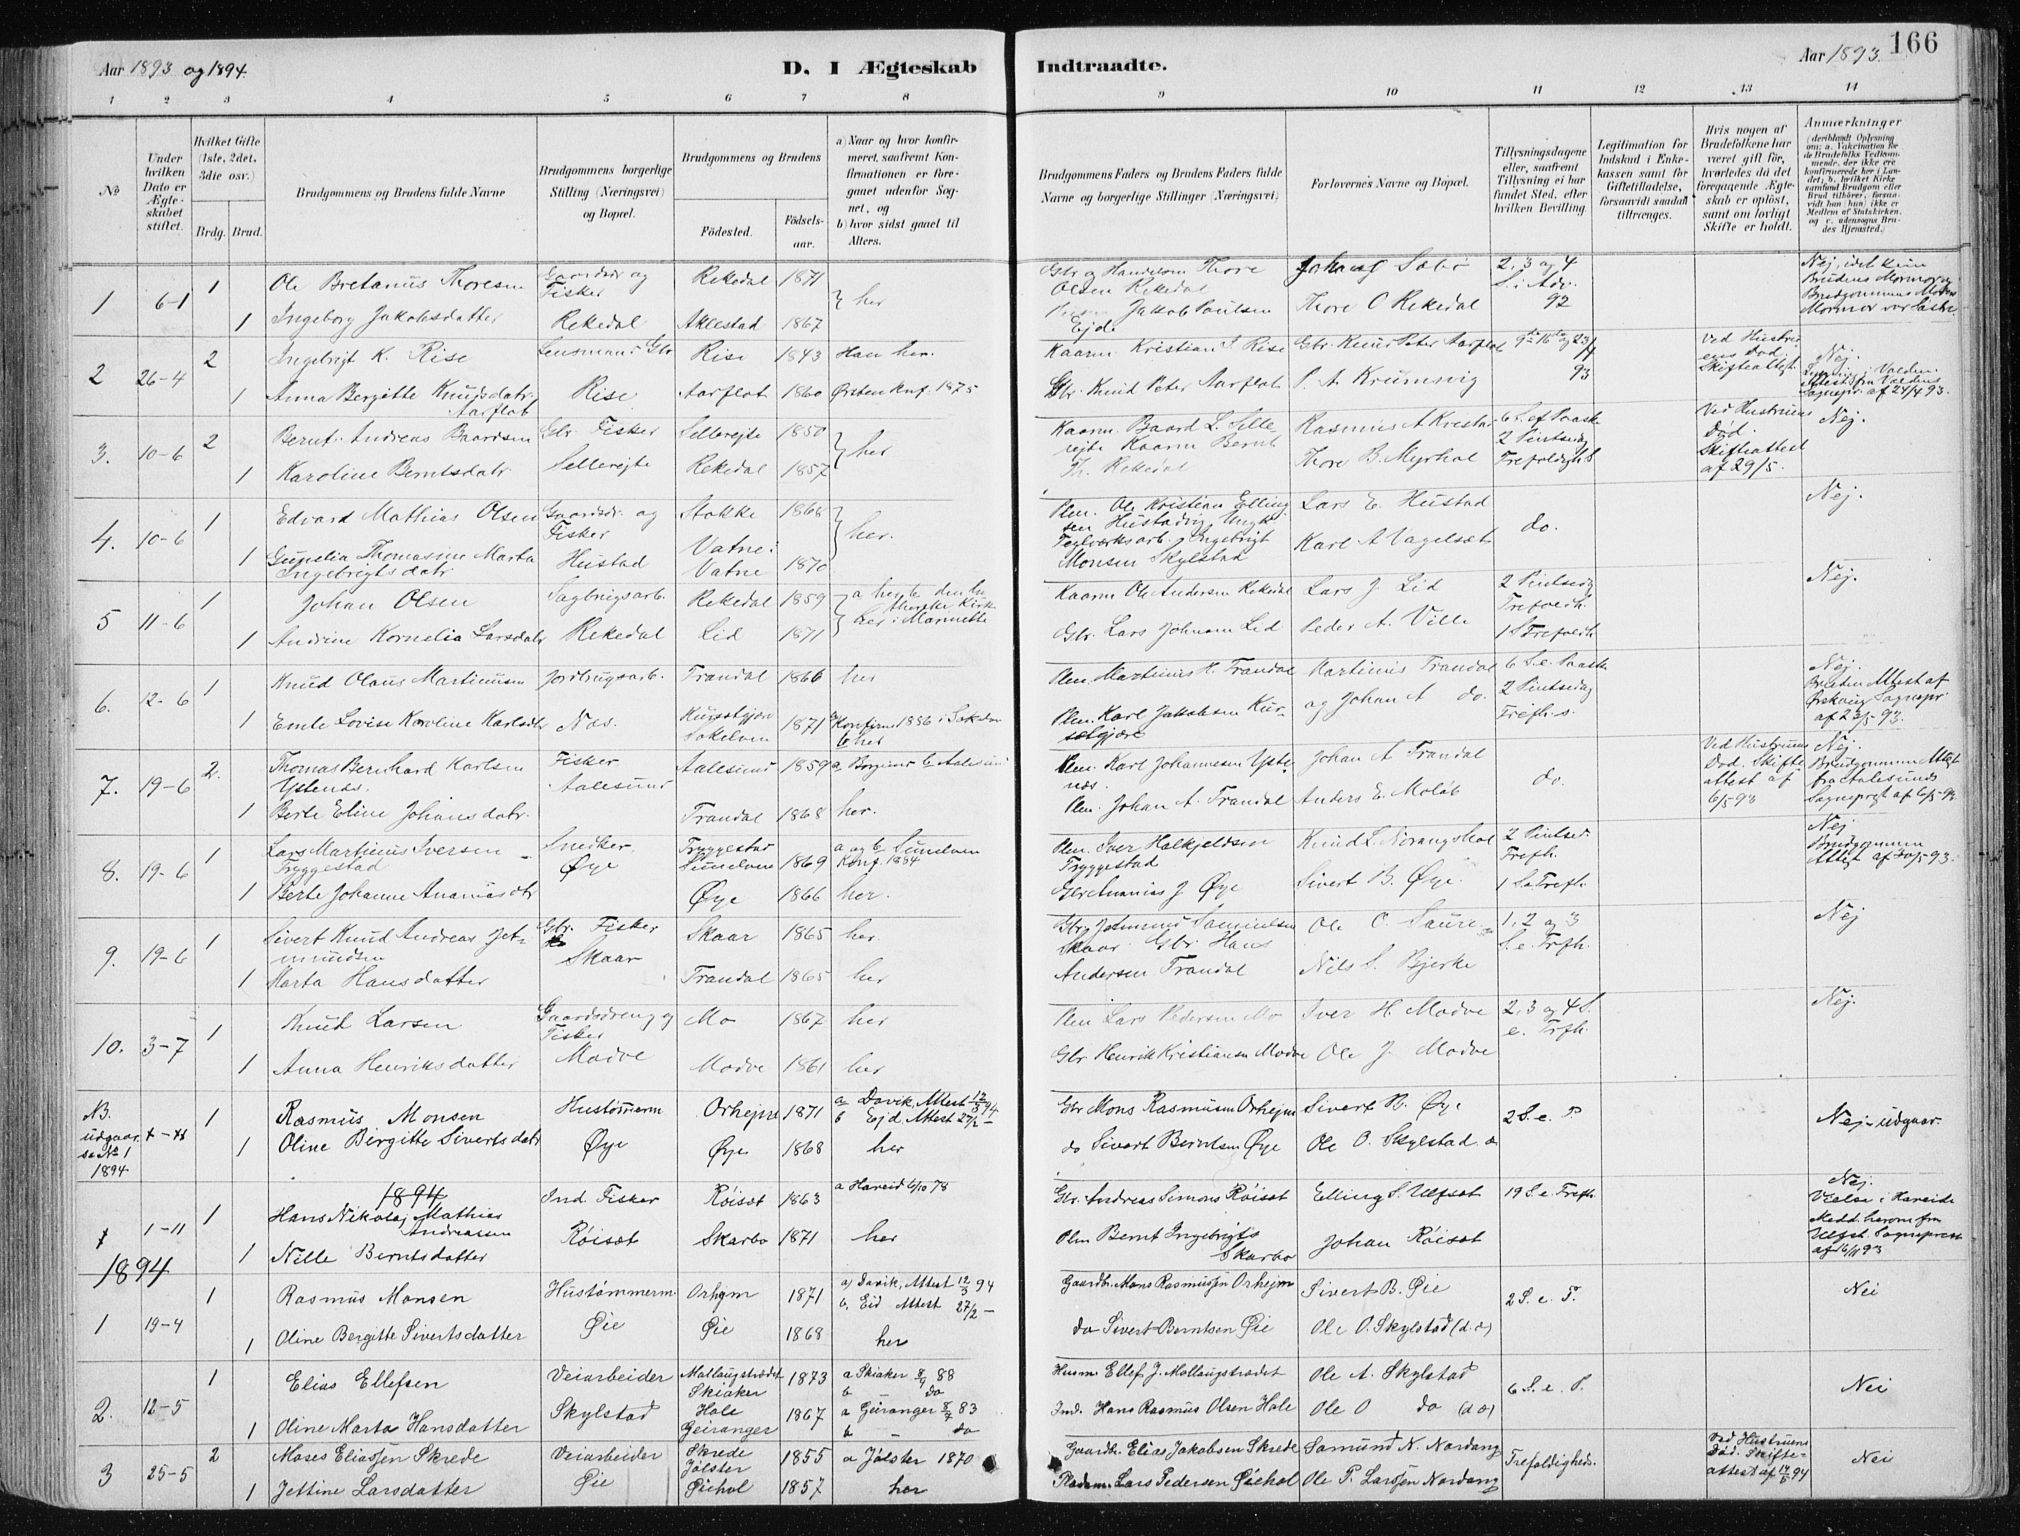 Aar 1893 og 1894.
D. I Ægteskab
Indtraadte.
Aar 1893.
166
1 2 3 4 5 6 7 8
9 10 11 12 13 14
No
Under hvilken Dato er Ægteskabet stiftet.
Hvilket Gifte (1ste, 2det, 3die osv.)
Brdg. Brud.
Brudgommens og Brudens fulde Navne
Brudgommens borgerlige Stilling (Næringsvei) og Bopæl.
Brudgommens og Brudens
Fødested.
Fødselsaar.
a) Naar og hvor konfirmeret, saafremt Konfirmationen er foregaaet udenfor Sognet, og
b) hvor sidst gaaet til Alters.
Brudgommens Faders og Brudens Faders fulde Navne og borgerlige Stillinger (Næringsvei)
Forlovernes Navne og Bopæl.
Tillysningsdagene eller, saafremt Tillysning ei har fundet Sted, efter hvilken Bevilling.
Legitimation for Indskud i Enkekassen samt for Giftetilladelse, forsaavidt saadan tiltrænges.
Hvis nogen af Brudefolkene har været gift før, hvorledes da det foregaaende Ægteskab er opløst, samt om lovligt Skifte er holdt.
Anmærkninger
(deriblandt Oplysning om: a. Vaccination for de Brudefolks Vedkommende, der ikke ere konfirmerede her i Landet; b. hvilket Kirkesamfund Brudgom eller Brud tilhører, forsaavidt han (hun) ikke er Medlem af Statskirken, og c. udensogns Brudes Hjemsted.)
1 6-1 1 Ole Bretanus Thoresen Gaardsdr og Fisker Rekedal 1871 } her
1 Ingeborg Jakobsdatter Rekedal Aklestad 1867
Gbr og Handelsm Thore Olsen Rekedal
Jakob Poulsen Ejde
Johan Sæbø
Thore O Rekedal
2, 3 og 4 S. i Adv. 92
2 26-4 2 Ingebrigt K. Rise Lensmand Gbr Rise 1843 Han her.
1 Anna Bergitte Knudsdatr. Aarflot Rise Aarflot 1860 Ørsten Knf. 1875
Kaarm Kristian I Rise
Gbr. Knud Peter Aarflot
Gbr. Knud Peter Aarflot
P. A. Krumsvig
93
Ved Hustruens Død. Skifteattest
Nej.
3. 10-6 2 Bernt Andreas Baardsen Gbr. Fisker Sellerejte 1850 } her
1 Karoline Berntsdatr Sellerejte Rekedal 1857
Kaarm Baard L. Sellerejte Kaarm Bernt Th. Rekedal
Rasmus A Krestar
Thore B. Myrhol
6 S. ef Paaske 2 Pintsedag Trefoldigh. S
Ved Hustruens Død. Skifteattest af 29/5.
Nej.
4. 10-6 1 Edvard Mathias Olsen Gaardsdr. og Fisker Stokke 1868 } her.
1 Gunelia Thomasine Marta Ingebrigtsdatr Hustad Vatne: Vatne 1870
Plm. Ole Kristian Ellingsen Hustadvig, Ungk Teglværksarb. Ingebrigt Monsen Skylstad
Lars E. Hustad
Karl A Vagelsæt
do.
Nej.
5 11-6 1 Johan Olsen Sagbrugsarb. Rekedal 1859
1 Andrine Kornelia Larsdatr Rekedal Lid 1871
Kaarm Ole Andersen Rekedal
Gbr. Lars Johnsen Lid
Lars J. Lid
Peder A. Ville
2 Pintsedag Trefoldh. 1 S Trefoldh
Nej.
6. 12-6 1 Knud Olaus Martinusen Jordbrugsarb. Trandal 1866 her
1 Emte Lovise Karoline Karlsdtr Næs. Søkelven 1871 Konfirm 1886 i Søkelven b her
Plm. Martinus H. Trandal
Plm. Karl Jakobsen Kurssetgjære
Martinus Trandal
og Johan A do.
6 S. e. Paaske 2 Pintsedag Trefh. s.
Nej. Bruden Attest af Ørskoug Sognepr. af 23/5 93.
7. 19-6 2. Thomas Bernhard Karlsen Ystenæs. Fisker Aalesund Aalesund 1859 a Borgund b Aalesund
1 Berte Eline Johansdatr. Trandal 1868 her.
Plm. Karl Johannesen Ystenæs.
Plm. Johan A. Trandal
Johan A Trandal
Anders E. Moløb
do.
Ved Hustruens Død. Skifteattest af 6/5 93
Nej. Brudgommen Attest fra Aalesunds Sognepræst af 6/5-93
8. 19-6 1 Lars Martinus Iversen Tryggestad Snedker, Øye Tryggestad Sunelven 1869 a og b Sunelven Konf. 1884
1 Berte Johanne Ananiasdtr Øye 1866 her.
Plm. Iver Halkjeldsen Tryggestad
Gbr Ananias J. Øye
Knud L. Norangshol
Sivert B. Øye.
2 Pintsed. Trefh. 1 S. Trefh.
Nej Brudgommen Attest af 20/5 93.
9. 19-6 1 Sivert Knud Andreas Jetmundsen Gbr. Fisker Skaar Skaar 1865 her.
1 Marta Hansdatter Trandal 1865 her
Gbr Jetmund Samuelsen Skaar. Gbr Hans Andersen Trandal
Ole O. Saure
Nils S. Bjerke
1, 2 og 3 S. e. Trfh.
Nej
10. 3-7 1 Knud Larsen Gaardsdreng og Fisker Mo 1867 her
1 Anna Henriksdatter Modve Modve 1861 her
Plm Lars Pedersen Mo
Gbr Henrik Kristiansen Modve
Iver H. Modve
Ole J. Modve
2, 3 og 4 S. e. Trfh.
Nej.
NB. udgaar se No 1 1894
1 Rasmus Monsen Hustømerm Orhejm 1871 a Davik, Attest 12/3 94 b Ejd Attest 27/2 -
1 Oline Birgitte Sivertsdatr Øye Øye 1868 her
Gbr Mons Rasmusen Orhejm
do Sivert Berntsen Øye
Sivert B. Øye
Ole O. Skylstad.
2 S. e. P
Nej - udgaar.
1894
1-11 1 Hans Nikolaj Mathias Andreassen Ind. Fisker Røisæt 1863 a Hareid 6/10 78
1 Nille Berntsdatter Røisæt Skarbø 1871 her
Gbr. Andreas Simons Røisæt
Plm Bernt Ingebrigts Skarbø
Elling S. Ulfsæt
Johan Røisæt
19 S. e. Trefh.
Nej. Vielse i Hareide Medd. herom fra Ulfst. Sognepræst af 16/11 93
1894
1 19-4 1 Rasmus Monsen Hustømmerm. Orhejm 1871 a) Davik, Attest 12/3 94 b. Eid Attest 27/2 -
1 Oline Bergitte Sivertsdatter Øie Øie 1868 her
Gaardbr. Mons Rasmussen Orhejm
do Sivert Berntsen Øie
Sivert B. Øie
Ole O. Skylstad (d.o)
2 S. e. P.
Nei
2. 12-5 1 Elias Ellefsen Veiarbeider Mollaugstrædet Skiaker 1873 a Skiaker 8/9 88 b do
1 Oline Marta Hansdatter Skylstad Hole Geiranger 1867 a Geiranger 8/7 83 b - do
Husm Ellef J. Mollaugstrædet
Ind. Hans Rasmus Olsen Hole
Ole A. Skylstad
Ole O do (d o)
6 S. e. P.
Nei
3 25-5 2 Moses Eliassen Skrede Veiarbeider Skrede Jølster 1855 a Jølster 1870
1 Jettine Larsdatter Øie Øiehol 1857 her
Gaardbr. Elias Jakobsen Skrede
Pladsm. Lars Pedersen Øiehol
Samund N. Nordang
Ole P. Larssen Nordang
Trefoldigheds.
Ved Hustruens Død. Skifteattest af 14/5 94
Nei